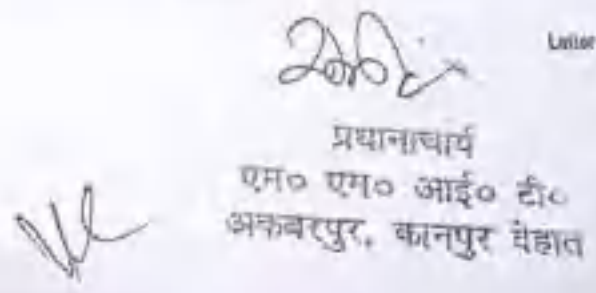 Letter
प्रधानाचार्य
एम० एम० आई० टी०
अकबरपुर, कानपुर देहात